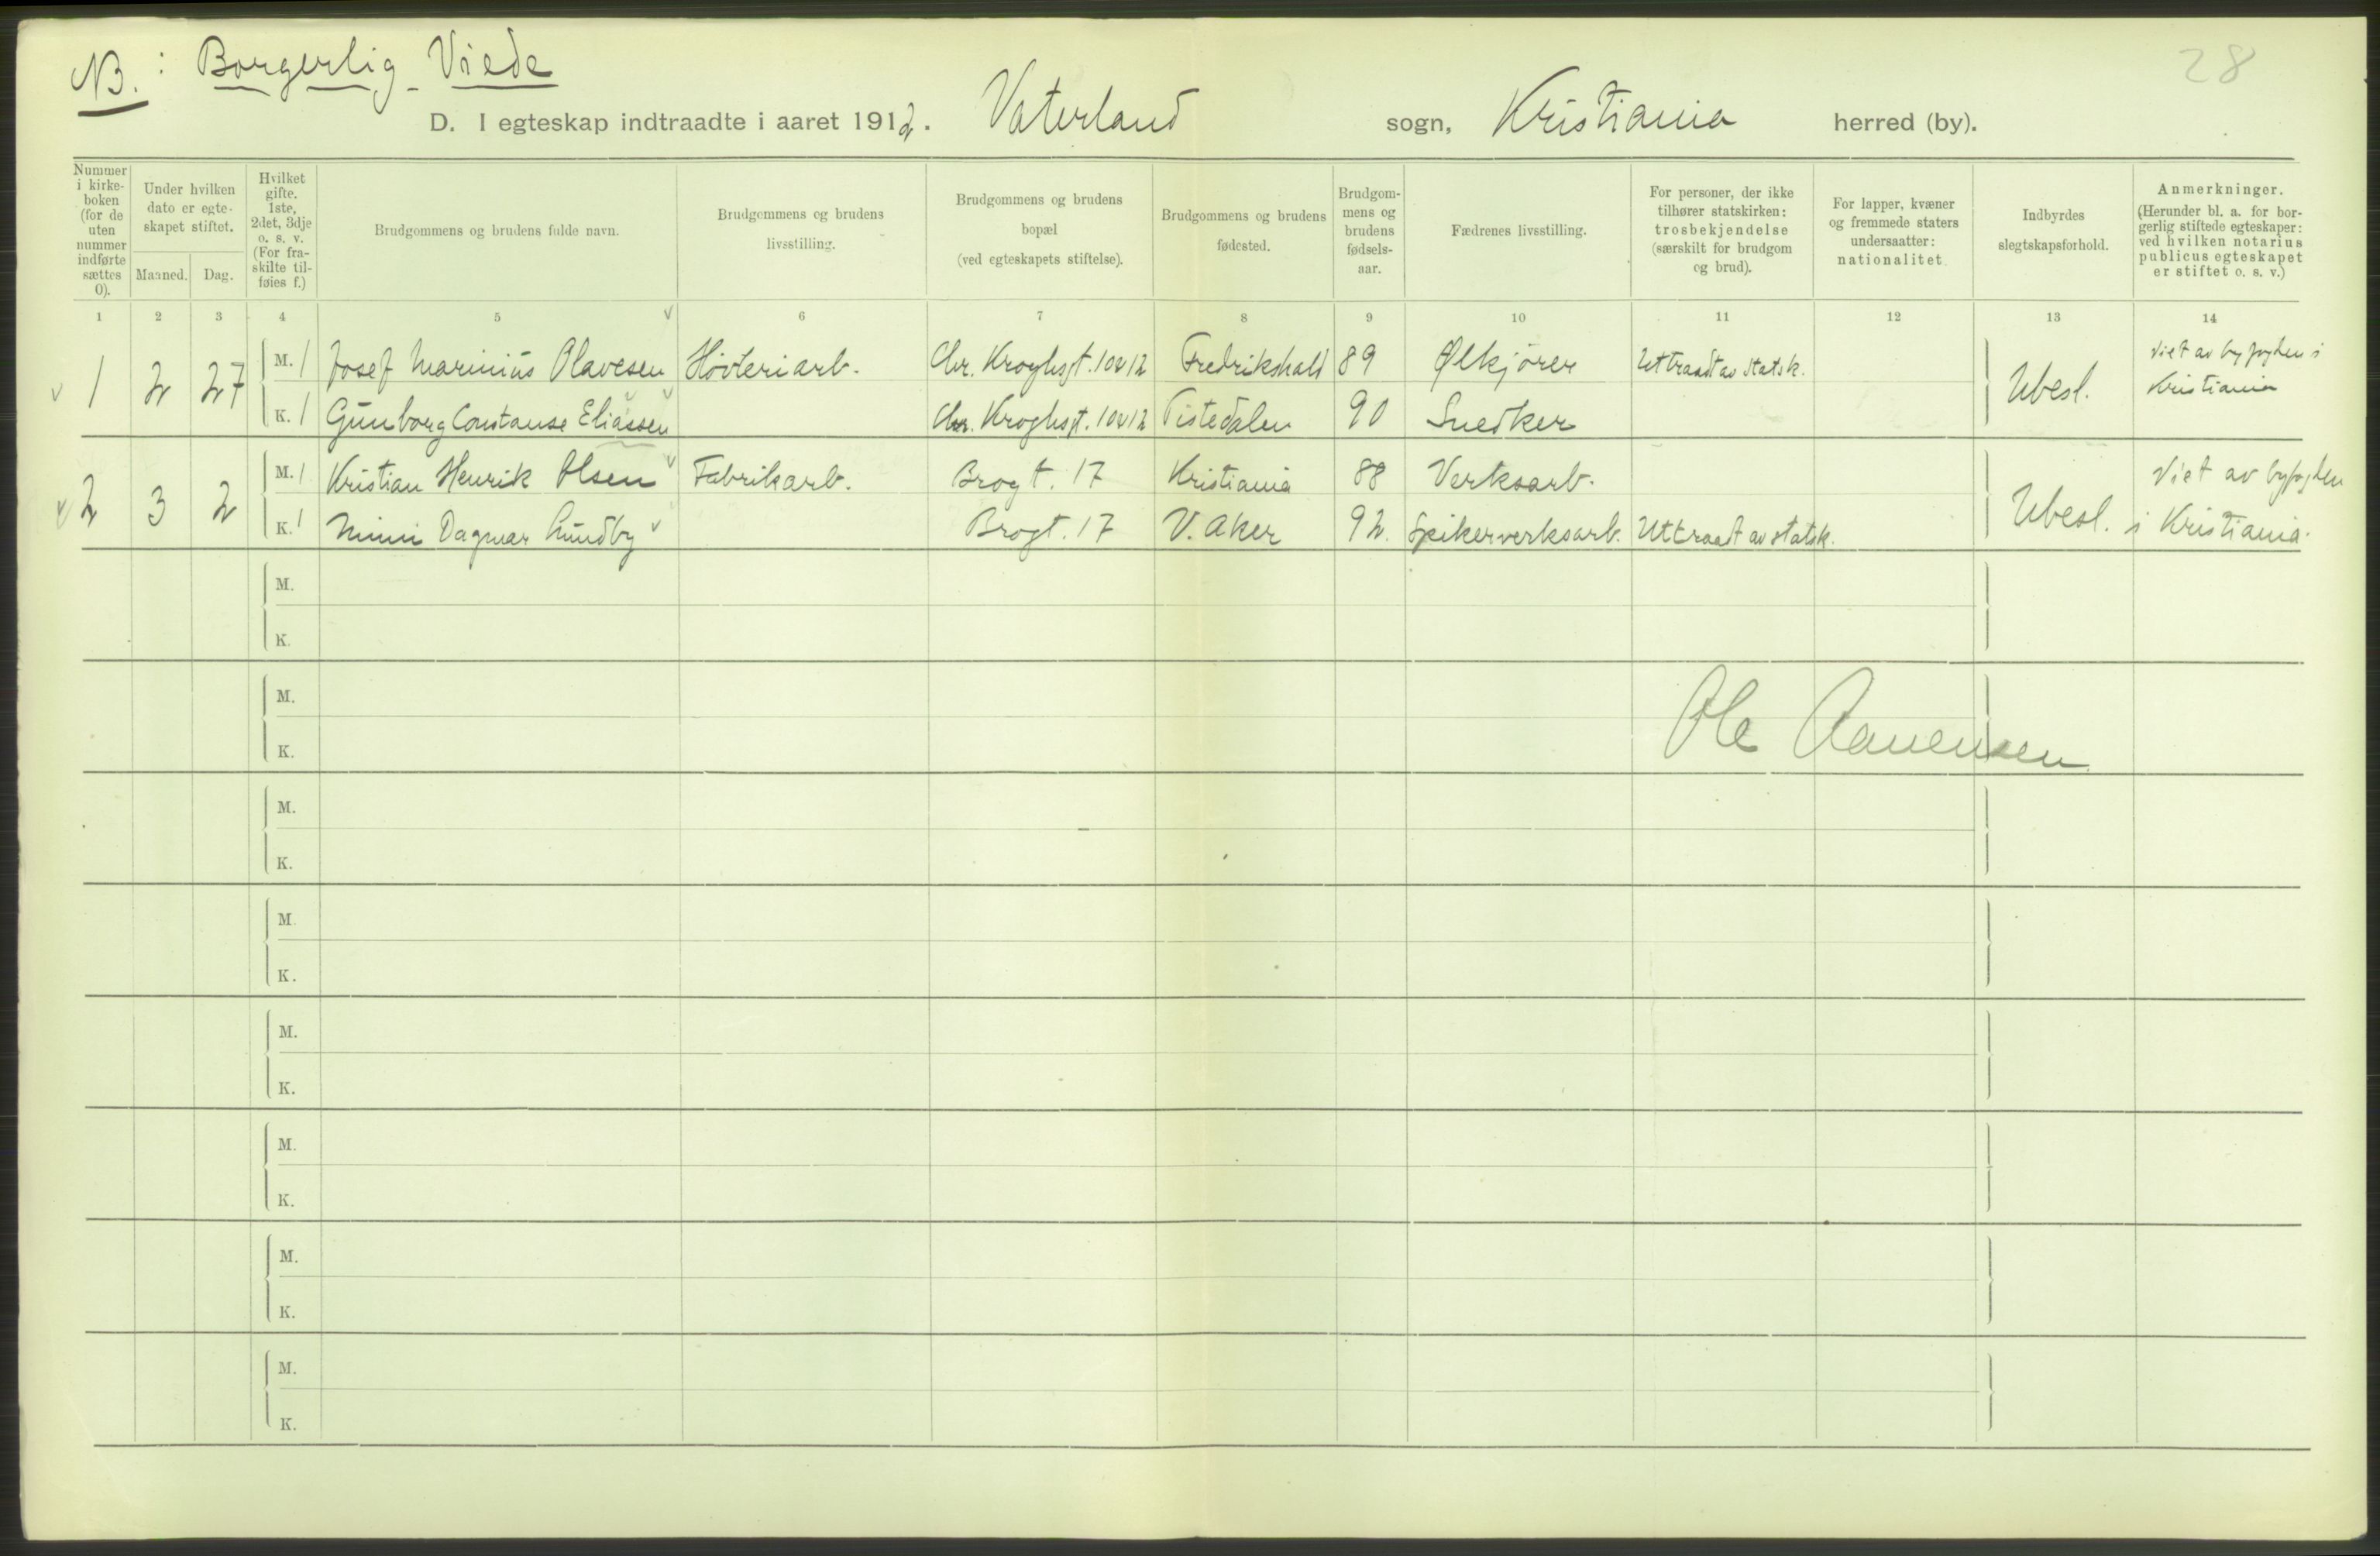 28
NB. : Borgerlig Viede
D. I egteskap indtraadte i aaret 1912. Vaterland sogn, Kristiania herred (by).
Nummer i kirke-boken (for de uten nummer indførte sættes 0).
Under hvilken dato er egte-skapet stiftet.
Maaned. Dag.
Hvilket gifte. 1ste, 2det, 3dje o. s. v. (For fra-skilte til-føies f.)
Brudgommens og brudens fulde navn.
Brudgommens og brudens livsstilling.
Brudgommens og brudens bopæl (ved egteskapets stiftelse).
Brudgommens og brudens fødested.
Brudgom-mens og brudens fødsels-aar.
Fædrenes livsstilling.
For personer, der ikke tilhører statskirken: trosbekjendelse (særskilt for brudgom og brud).
For lapper, kvæner og fremmede staters undersaatter: nationalitet.
Indbyrdes slegtskapsforhold.
Anmerkninger. (Herunder bl. a. for bor-gerlig stiftede egteskaper: ved hvilken notarius publicus egteskapet er stiftet o. s. v.)
1 2 3 4 5 6 7 8 9 10 11 12 13 14
1 2 27 M. 1 Josef Marinius Olavesen Høvleriarb. Chr. Kroghsgt. 10 12 Fredrikshald 89 Ølkjører Uttraadt av statsk. Ubesl. Viet av byfogden i Kristiania
K. 1 Gunborg Constanse Eliassen Chr. Kroghsgt. 10 12 Tistedalen 90 Snedker
2 3 2 M. 1 Kristian Henrik Olsen Fabrikarb. Brogt. 17 Kristiania 88 Verksarb. Ubesl. Viet av byfogden i Kristiania.
K. 1 Mimi Dagmar Lundby Brogt. 17 V. Aker 92. Spikerverksarb. Uttraadt av statsk.
M.
K.
M.
Ole Aanensen
K.
M.
K.
M.
K.
M.
K.
M.
K.
M.
K.
M.
K.